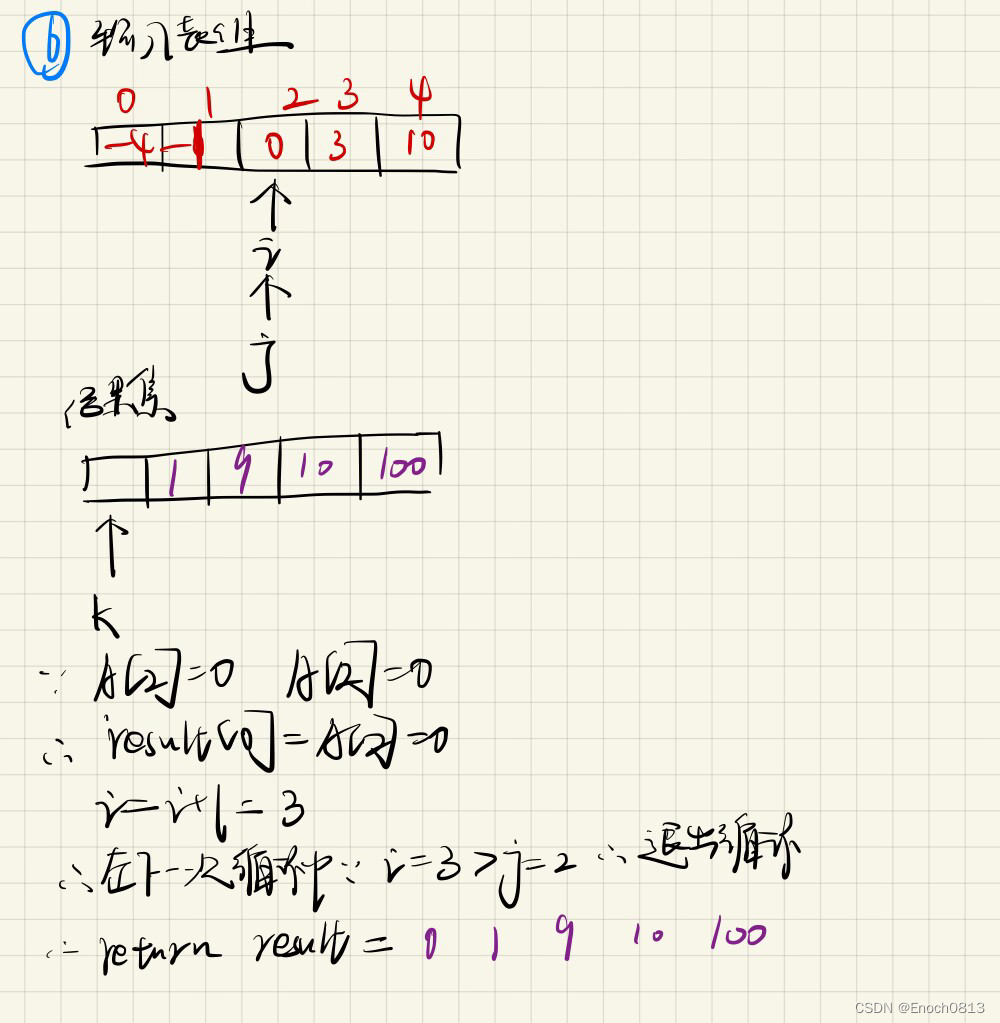 ⑥ 输入数组
0 1 2 3 4
-4 -1 0 3 10
↑
i
↑
j
结果集
1 9 10 100
↑
k
∵ A[2]=0 A[2]=0
∴ result[0]=A[2]=0
i=i+1=3
∴在下一次循环中∵ i=3>j=2 ∴退出循环
∴ return result = 0 1 9 10 100
CSDN @Enoch0813